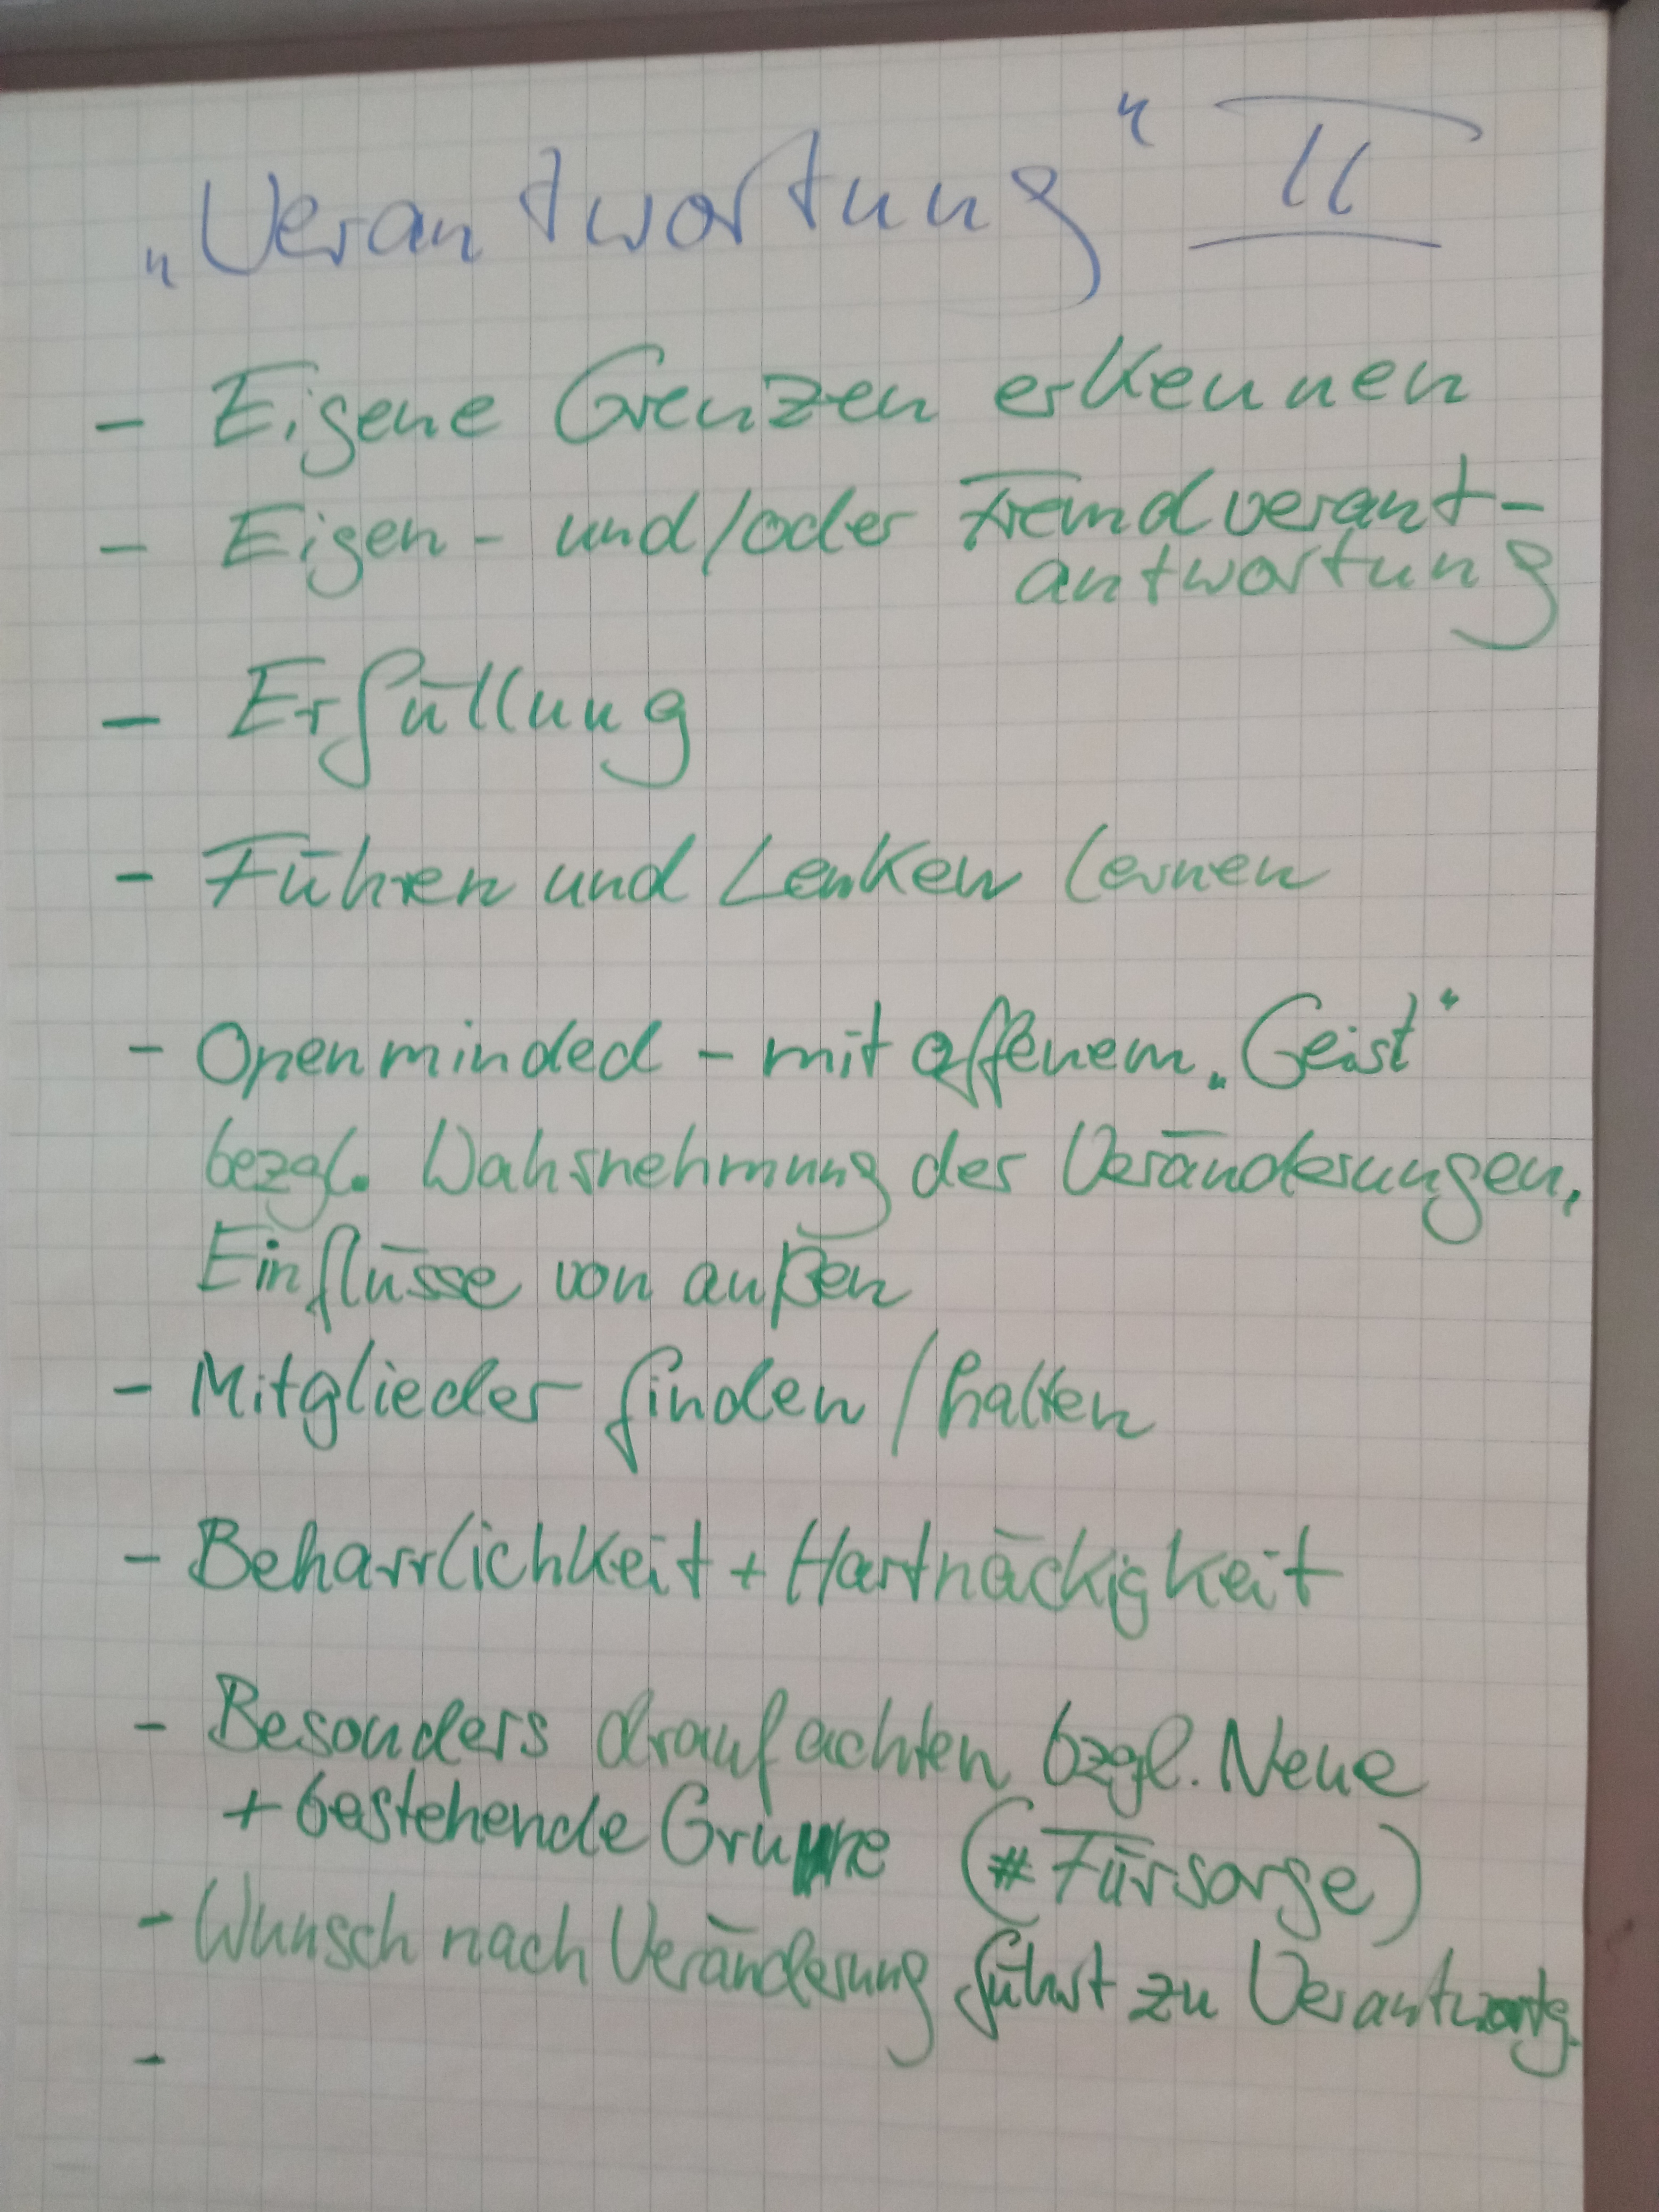 „Verantwortung“ II
- Eigene Grenzen erkennen
- Eigen- und/oder Fremdverant-
antwortung
- Erfüllung
- Führen und Lenken lernen
- Openminded - mit offenem „Geist“
bezgl. Wahrnehmung der Veränderungen,
Einflüsse von außen
- Mitglieder finden/halten
- Beharrlichkeit + Hartnäckigkeit
- Besonders drauf achten bzgl. Neue
+ bestehende Gruppe (#Fürsorge)
- Wunsch nach Veränderung führt zu Verantwortg.
-